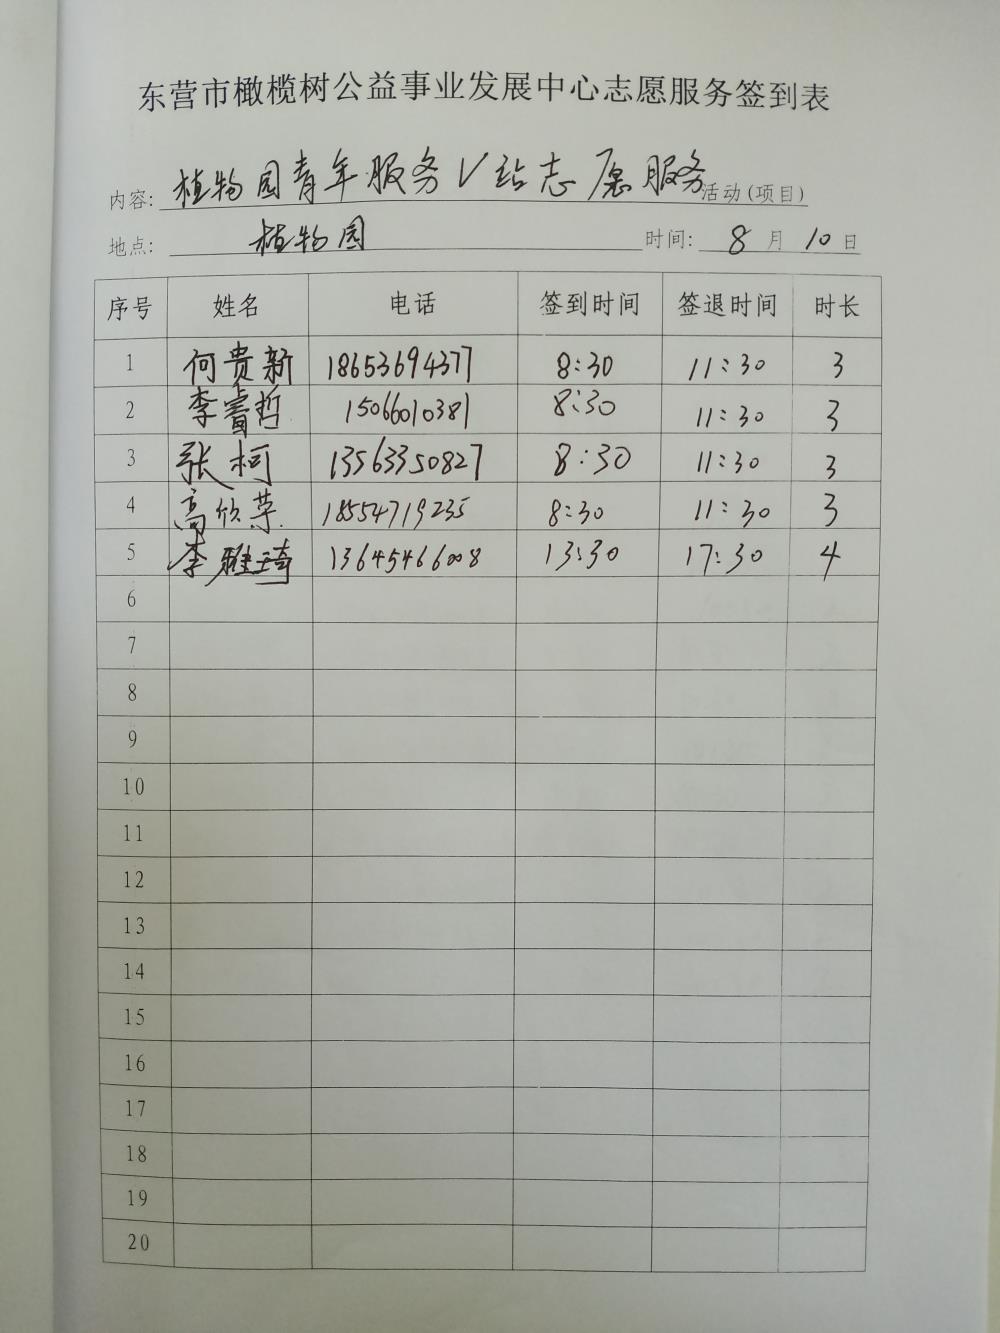 东营市橄榄树公益事业发展中心志愿服务签到表
内容: 植物园青年服务V站志愿服务 活动(项目)
地点: 植物园 时间: 8 月 10 日
序号 姓名 电话 签到时间 签退时间 时长
1 何贵新 18653694377 8:30 11:30 3
2 李睿哲 15066010381 8:30 11:30 3
3 张柯 13563350827 8:30 11:30 3
4 高欣荣 18554719235 8:30 11:30 3
5 李雅琦 13645466008 13:30 17:30 4
6
7
8
9
10
11
12
13
14
15
16
17
18
19
20